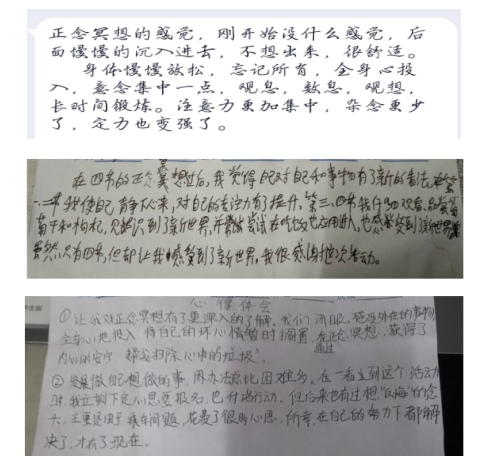 正念冥想的感觉，刚开始没什么感觉，后
面慢慢的沉入进去，不想出来，很舒适。
身体慢慢放松，忘记所有，全身心投
入，意念集中一点，观息，数息，观想，
长时间锻炼。注意力更加集中，杂念更少
了，定力也变强了。
在四节的正念冥想过后，我觉得自己对自己和事物有了新的看法
我使自己静下心来，对自己的专注力有提升。第三、四节我
葡萄干和枸杞，又认识到了新世界，并尝试在吃饭也应用进入，也感受到新世界
虽然只有四节，但却让我感受到了新世界，我很感谢这次活动。
心得体会
①让我对正念冥想有了更深入的了解。我们闭眼，感受外在的事物
全身心地投入，将自己的坏心情暂时搁置，通过正念冥想，获得了
内心的安宁，扫除心中的垃圾。
②发展做自己想做的事，因办法总比困难多。在一看到这个活动
时，我立刻下定心思要报名，已付诸行动。但后来也有过想“反悔”的念
头，主要是由于乘车问题，花费了很多心思，所幸，在自己的努力下都解
决了，才有了现在。